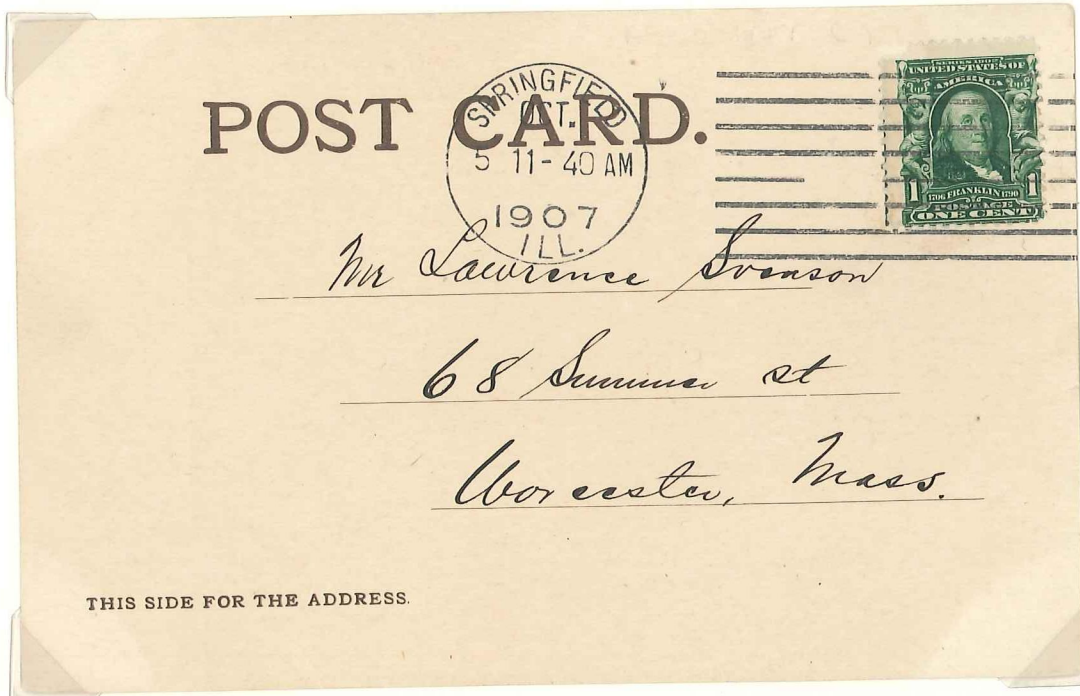 POST CARD.
SPRINGFIELD
OCT.
5 11-40 AM
1907
ILL.
SERIES 1902
UNITED STATES OF
AMERICA
1 1706 FRANKLIN 1790 1
POSTAGE
ONE CENT
Mr Lawrence Svenson
68 Summer st
Worcester, Mass.
THIS SIDE FOR THE ADDRESS.